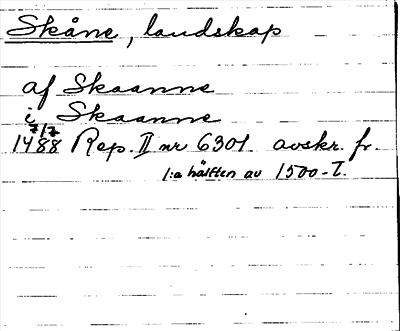 Skåne, landskap
af Skaanne
i Skaanne
7/7
1488 Rep. II nr 6301 avskr. fr.
1:a hälften av 1500-t.